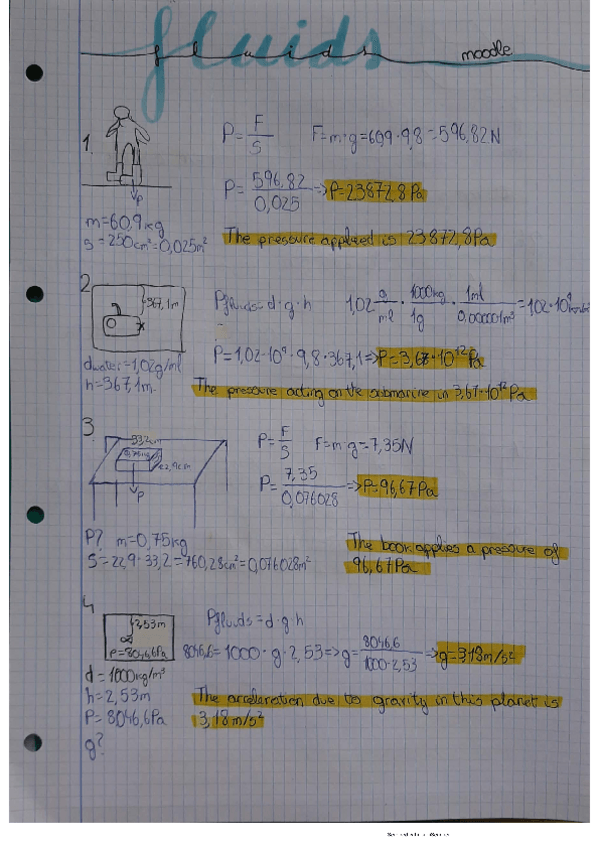 fluids
fluids moodle
1. P = F/S F=m·g=60,9·9,8=596,82N
P = 596,82/0,025 => P=23872,8 Pa
P
m=60,9kg
S=250cm²=0,025m²
The pressure applied is 23872,8Pa
2 367,1m Pfluids=d·g·h 1,02 g/ml · 1000kg/1g · 1ml/0,000001m³ = 1,02·10⁹
P=1,02·10⁹·9,8·367,1=>P=3,67·10¹²Pa
dwater=1,02g/ml
h=367,1m.
The pressure acting on the submarine in 3,67·10¹²Pa
3 33,2cm P=F/S F=m·g=7,35N
0,75kg
22,9cm
P
P= 7,35/0,076028 => P=96,67Pa
P? m=0,75kg
S=22,9·33,2=760,28cm²=0,076028m²
The book applies a pressure of
96,67Pa
4 2,53m Pfluids=d·g·h
P=8046,6Pa 8046,6=1000·g·2,53=>g= 8046,6/1000·2,53 =>g=3,18m/s²
d=1000kg/m³
h=2,53m
P=8046,6Pa
g?
The acceleration due to gravity in this planet is
3,18m/s²